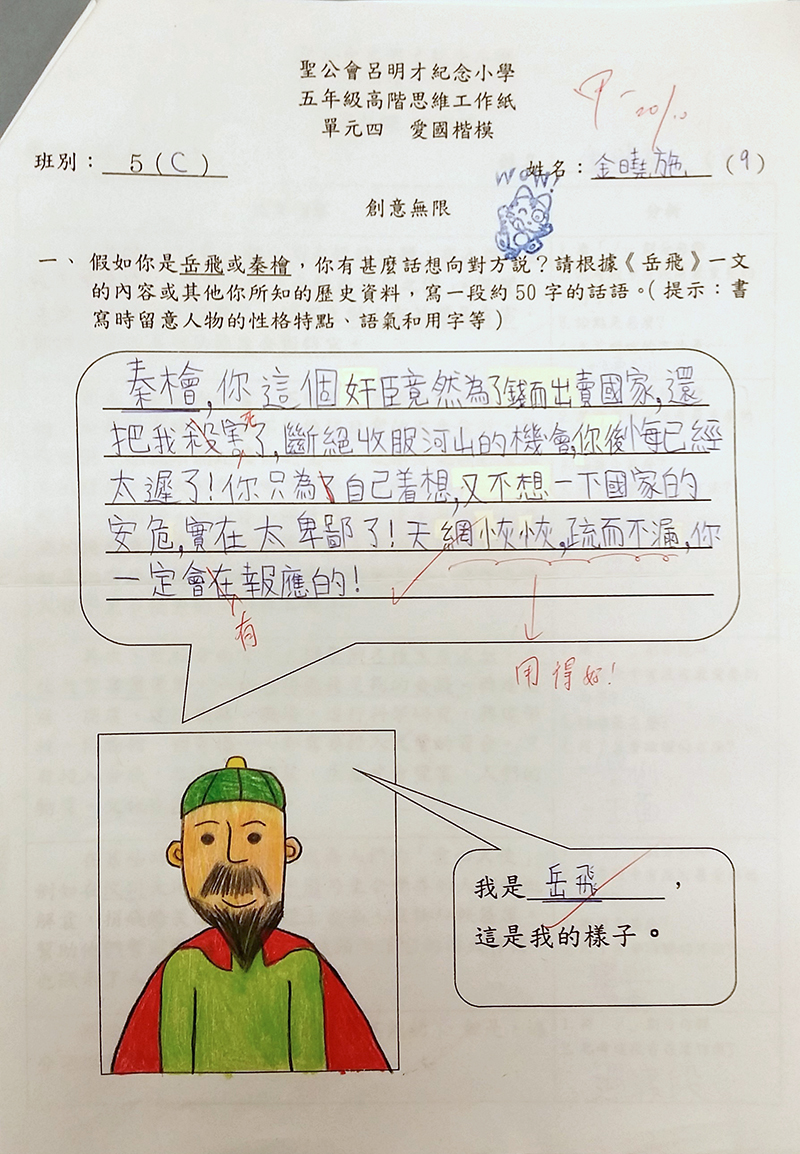 聖公會呂明才紀念小學
五年級高階思維工作紙
單元四　愛國楷模
甲-
20/10
班別：5（C）
姓名：金曉施（9）
WOW!
創意無限
一、假如你是岳飛或秦檜，你有甚麼話想向對方說？請根據《岳飛》一文
的內容或其他你所知的歷史資料，寫一段約50字的話語。（提示：書
寫時留意人物的性格特點、語氣和用字等）
秦檜，你這個奸臣竟然為了錢而出賣國家，還
把我殺害了，斷絕收服河山的機會，你後悔已經
死
太遲了！你只為了自己着想，又不想一下國家的
安危，實在太卑鄙了！天網恢恢，疏而不漏，你
一定會在報應的！
有
用得好！
我是岳飛，
這是我的樣子。